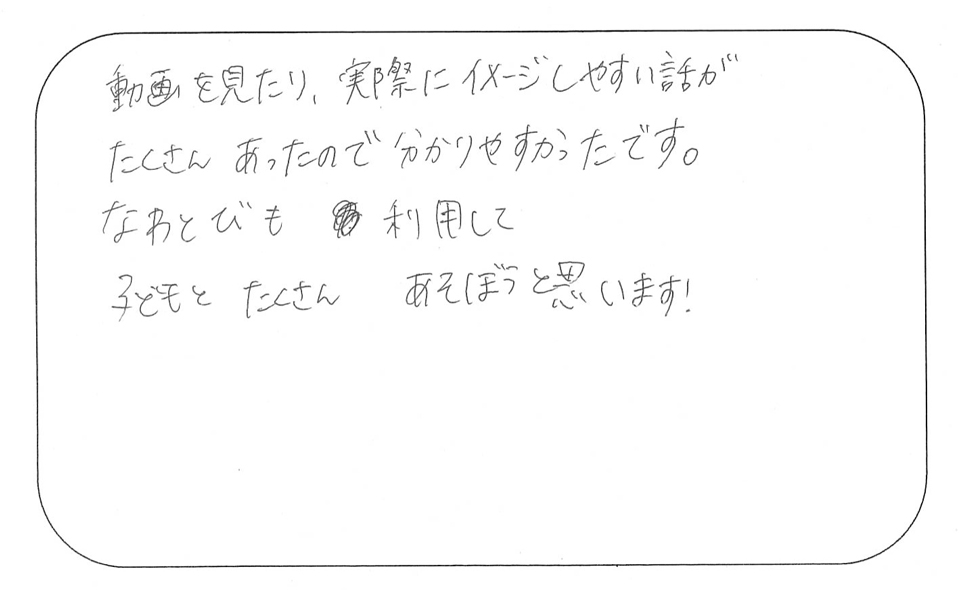 動画を見たり、実際にイメージしやすい話が
たくさん あったので分かりやすかったです。
なわとびも 利用して
子どもと たくさん あそぼうと思います!